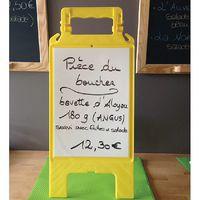 2,50€
Pièce du
boucher
bavette d'Aloyau
180 g (ANGUS)
servi avec frites et salade
12,30€
L'Auve
Salade